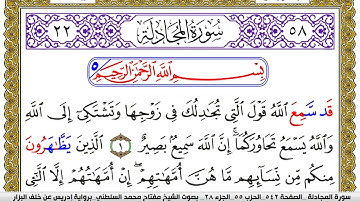 ٥٨ سُورَةُ المُجَادلَةِ ٢٢
بِسْمِ اللَّهِ الرَّحْمَٰنِ الرَّحِيمِ ٥
قَد سَّمِعَ اللَّهُ قَوْلَ الَّتِي تُجَٰدِلُكَ فِي زَوْجِهَا وَتَشْتَكِي إِلَى اللَّهِ
وَاللَّهُ يَسْمَعُ تَحَاوُرَكُمَا إِنَّ اللَّهَ سَمِيعٌ بَصِيرٌ ١ الَّذِينَ يَظَّٰهَرُونَ
مِنكُم مِّن نِّسَآئِهِم مَّا هُنَّ أُمَّهَٰتِهِمْ إِنْ أُمَّهَٰتُهُمْ إِلَّا الَّٰٓئِي
سورة المجادلة . الصفحة ٥٤٢ الحزب ٥٥ الجزء ٢٨ . بصوت الشيخ مفتاح محمد السلطني . برواية إدريس عن خلف البزار